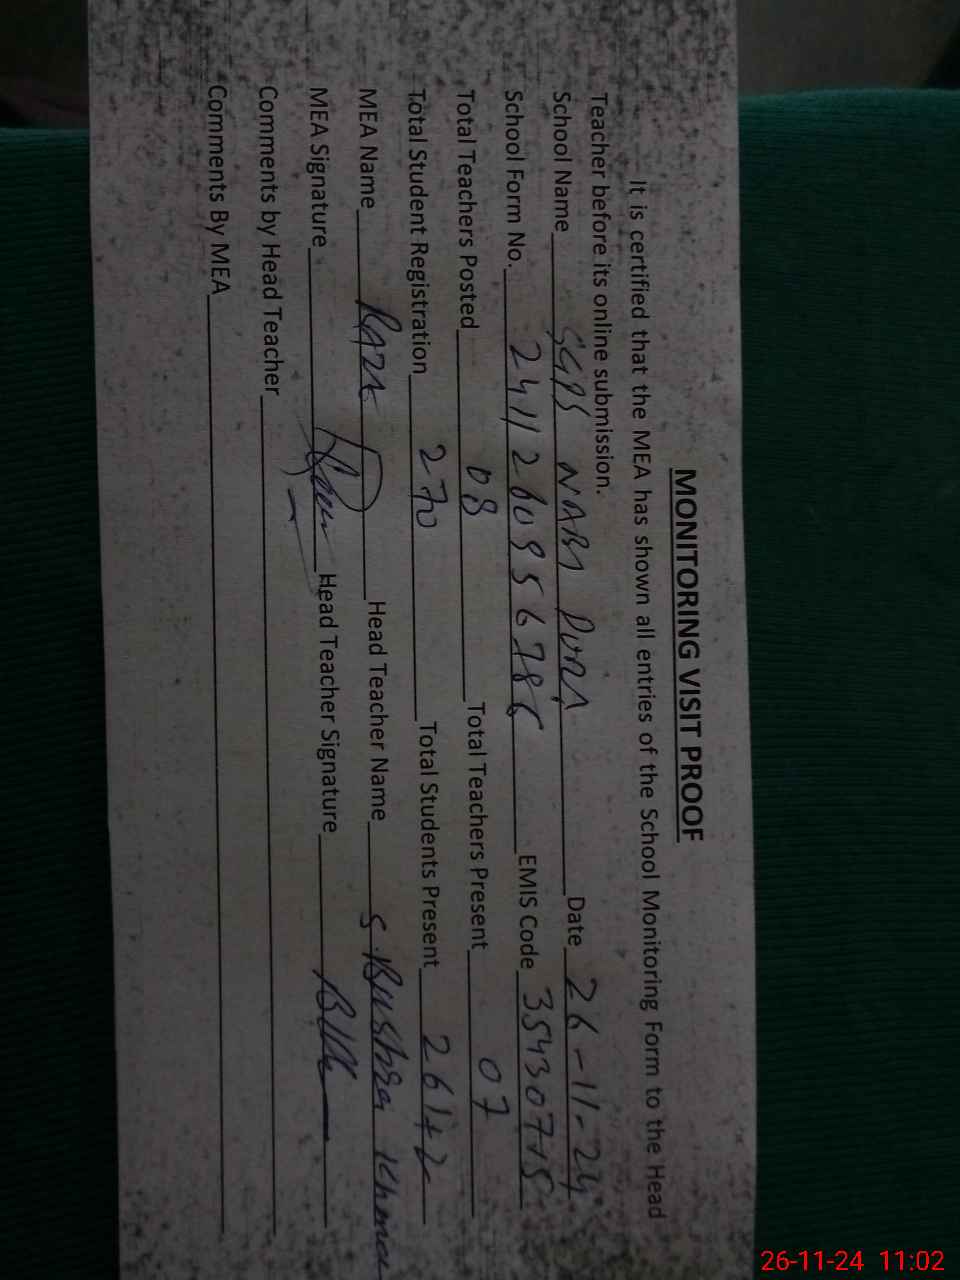 MONITORING VISIT PROOF
It is certified that the MEA has shown all entries of the School Monitoring Form to the Head
Teacher before its online submission.
School Name SGPS NABI PURA Date 26-11-24
School Form No. 2411260956786 EMIS Code 35430715
Total Teachers Posted 08 Total Teachers Present 07
Total Student Registration 270 Total Students Present 261+2
MEA Name RAZA Head Teacher Name S. Bushra
MEA Signature Head Teacher Signature
Comments by Head Teacher
Comments By MEA
26-11-24 11:02